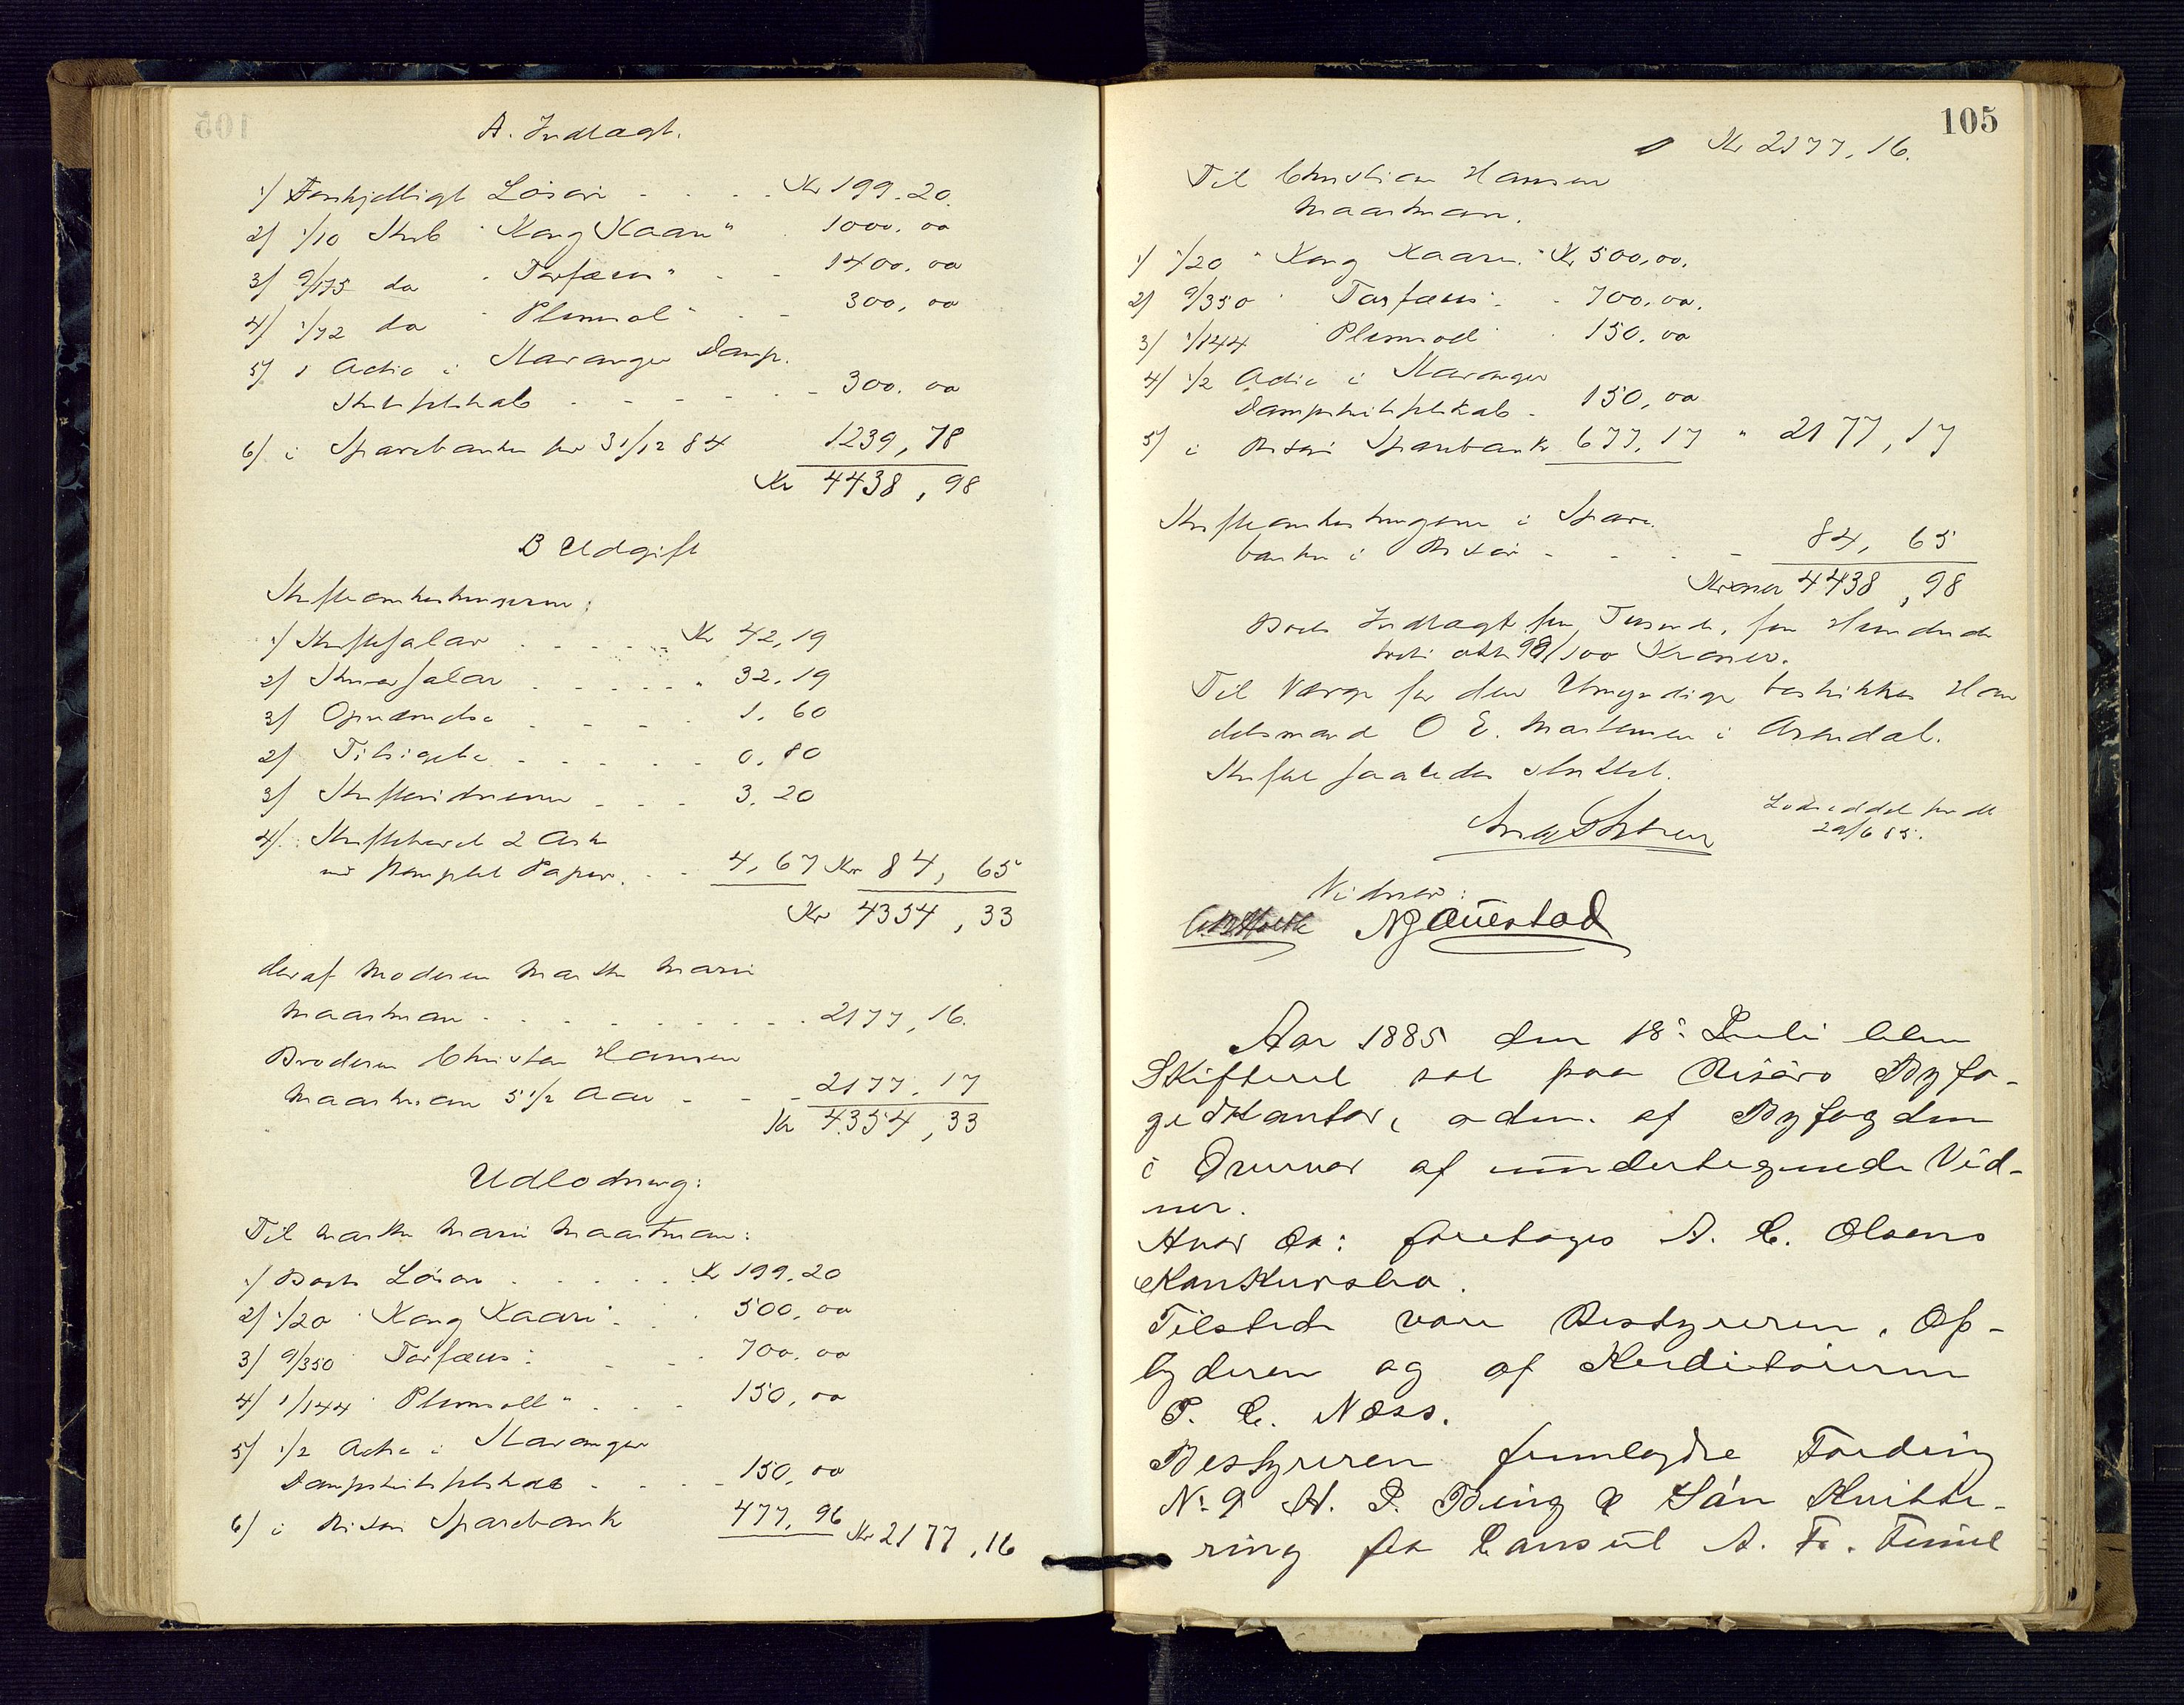 A. Indtægt.
1/ Forskjelligt Løsøre - - - Kr 199.20.
2/ 1/10 Skib "Kong Kaare" 1000.00
3/ 9/175 do "Torfæus" - - 1400.00
4/ 1/72 do "Plimsol" - - 300,00
5/ 1 Actie i Stavanger Damp.
skibsselskab - - - - - 300.00
6/ i Sparebanken pr 31/12 84 1239,78
Kr 4438,98
B Udgift
Skifteomkostningerne:
1/ Skiftesalær - - - - Kr 42,19
2/ Skriversalær - - - - - " 32.19
3/ Opnævnelse - - - - 1.60
2/ Tilsigelse - - - - - 0.80
3/ Skiftevidnerne - - - 3.20
4/ Skiftebrevet 2 Ark
med stemplet Papir. - - 4,67 Kr 84,65
Kr 4354,33
deraf Moderen Marthe Marie
Maartman - - - - - - - - - 2177,16.
Broderen Christian Hansen
Maartman 5 1/2 Aar - - - 2177.17
Kr 4354,33
Udlodning:
Til Marthe Marie Maartman:
1/ Boets Løsøre - - - - - Kr 199.20
2/ 1/20 "Kong Kaare" - - 500,00
3/ 9/350 Torfæus: - - - 700.00
4/ 1/144 "Plimsoll" - - - 150,00
5/ 1/2 Actie i Stavanger
Dampskibsselskab - - - - 150,00
6/ i Risør Sparebank 477,96 Kr 2177,16
105
Kr 2177,16.
Til Christian Hansen
Maartman.
1/ 1/20 "Kong Kaare." Kr 500,00.
2/ 9/350 "Torfæus" - 700,00.
3/ 1/144 Plimsoll 150.00
4/ 1/2 Actie i Stavanger
Dampskibsselskab - 150,00
5/ i Risør Sparebank 677.17 " 2177,17
Skifteomkostningerne i Spare
banken i Risør - - - - 84,65
Kroner 4438,98
Boets Indtægt fire Tusinde, fire Hundrede
treti otte 98/100 Kroner.
Til Værge for den Umyndige beskikkes Han
delsmand O E. Mortensen i Arendal.
Skiftet saaledes sluttet.
Lodseddel pr dt
29/6 85.
Vidner:
NJ Auestad
Aar 1885 den 18de Juli blev
Skifteret sat paa Risørs Byfo-
gedkontor, adm. af Byfogden
i Overvær af undertegnede Vid-
ner.
Hvor da: foretoges A. C. Olsens
Konkursbo.
Tilstede vare Bestyreren, Op-
byderen og af Kreditorerne
P. C. Næss.
Bestyreren fremlagde Fordring
No 9 H. P. Bing & Søn Kvitte-
ring fra Consul A. Fr. Finne